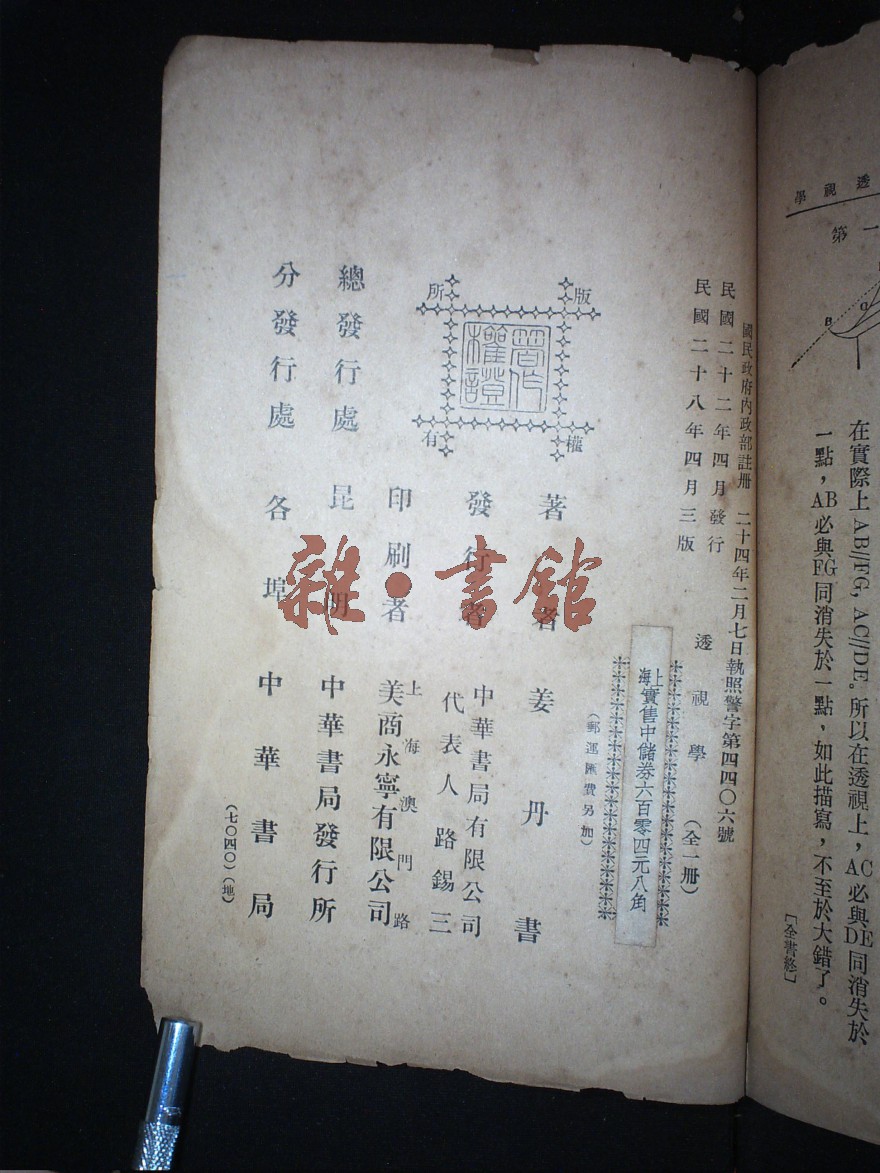 透視學
第一
B
在實際上AB//FG, AC//DE。所以在透視上，AC必與DE同消失於
一點，AB必與FG同消失於一點，如此描寫，不至於大錯了。
〔全書終〕
國民政府內政部註冊 二十四年二月七日執照警字第四四〇六號
民國二十二年四月發行
民國二十八年四月三版
透視學（全一冊）
上海實售中儲券六百零四元八角
（郵運匯費另加）
版權所有
著作權證
著者 姜丹書
發行者 中華書局有限公司
代表人 路錫三
上海澳門路
印刷者 美商永寧有限公司
總發行處 昆明 中華書局發行所
分發行處 各埠 中華書局
（七〇四〇）（地）
雜·書館